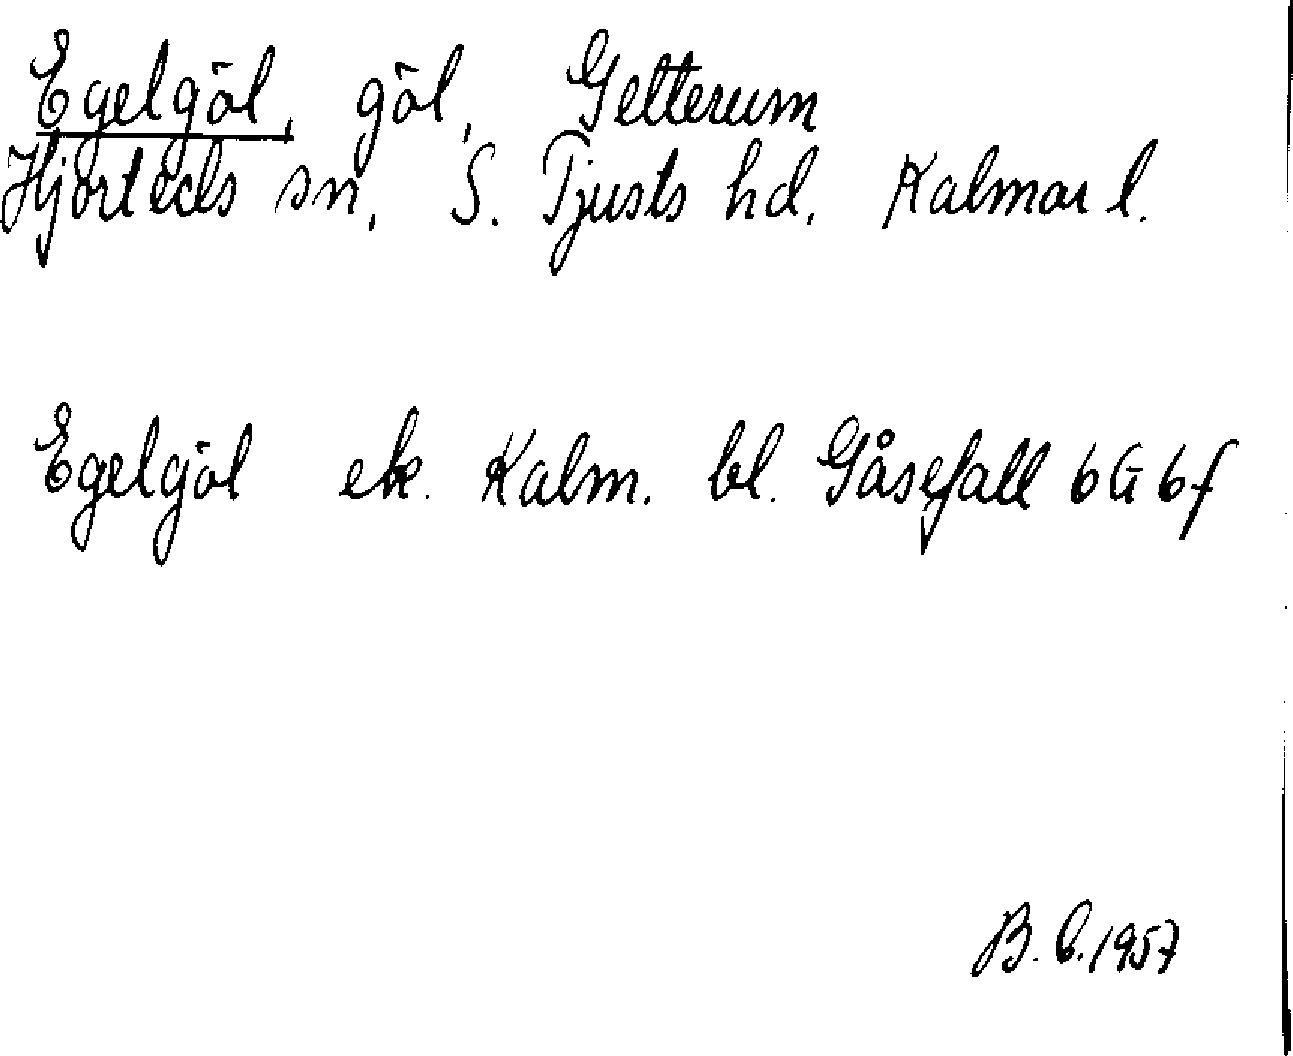 Egelgöl, göl, Getterum
Hjorteds sn, S. Tjusts hd, Kalmar l.
Egelgöl ek. Kalm. bl. Gåsefall 6G 6f
B. 1957